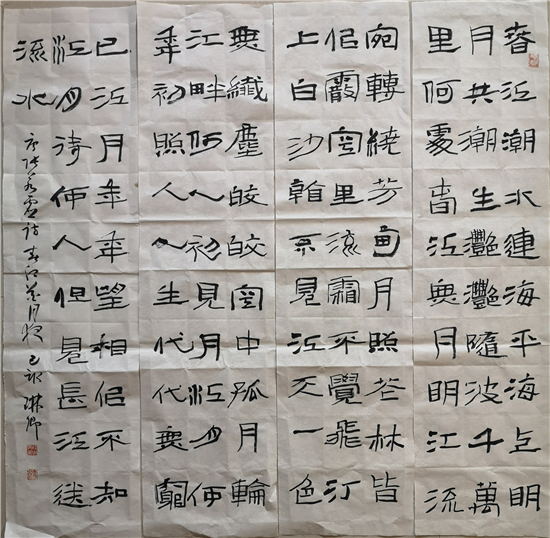 春江潮水連海平海上明
月共潮生灩灩隨波千萬
里何處春江無月明江流
宛轉繞芳甸月照花林皆
似霰空里流霜不覺飛汀
上白沙看不見江天一色
無纖塵皎皎空中孤月輪
江畔何人初見月江月何
年初照人人生代代無窮
已江月年年望相似不知
江月待何人但見長江送
流水
唐張若虛詩春江花月夜